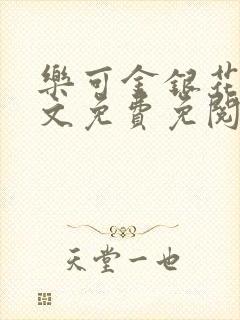 樂可金銀花
文免費免閱
天堂一也